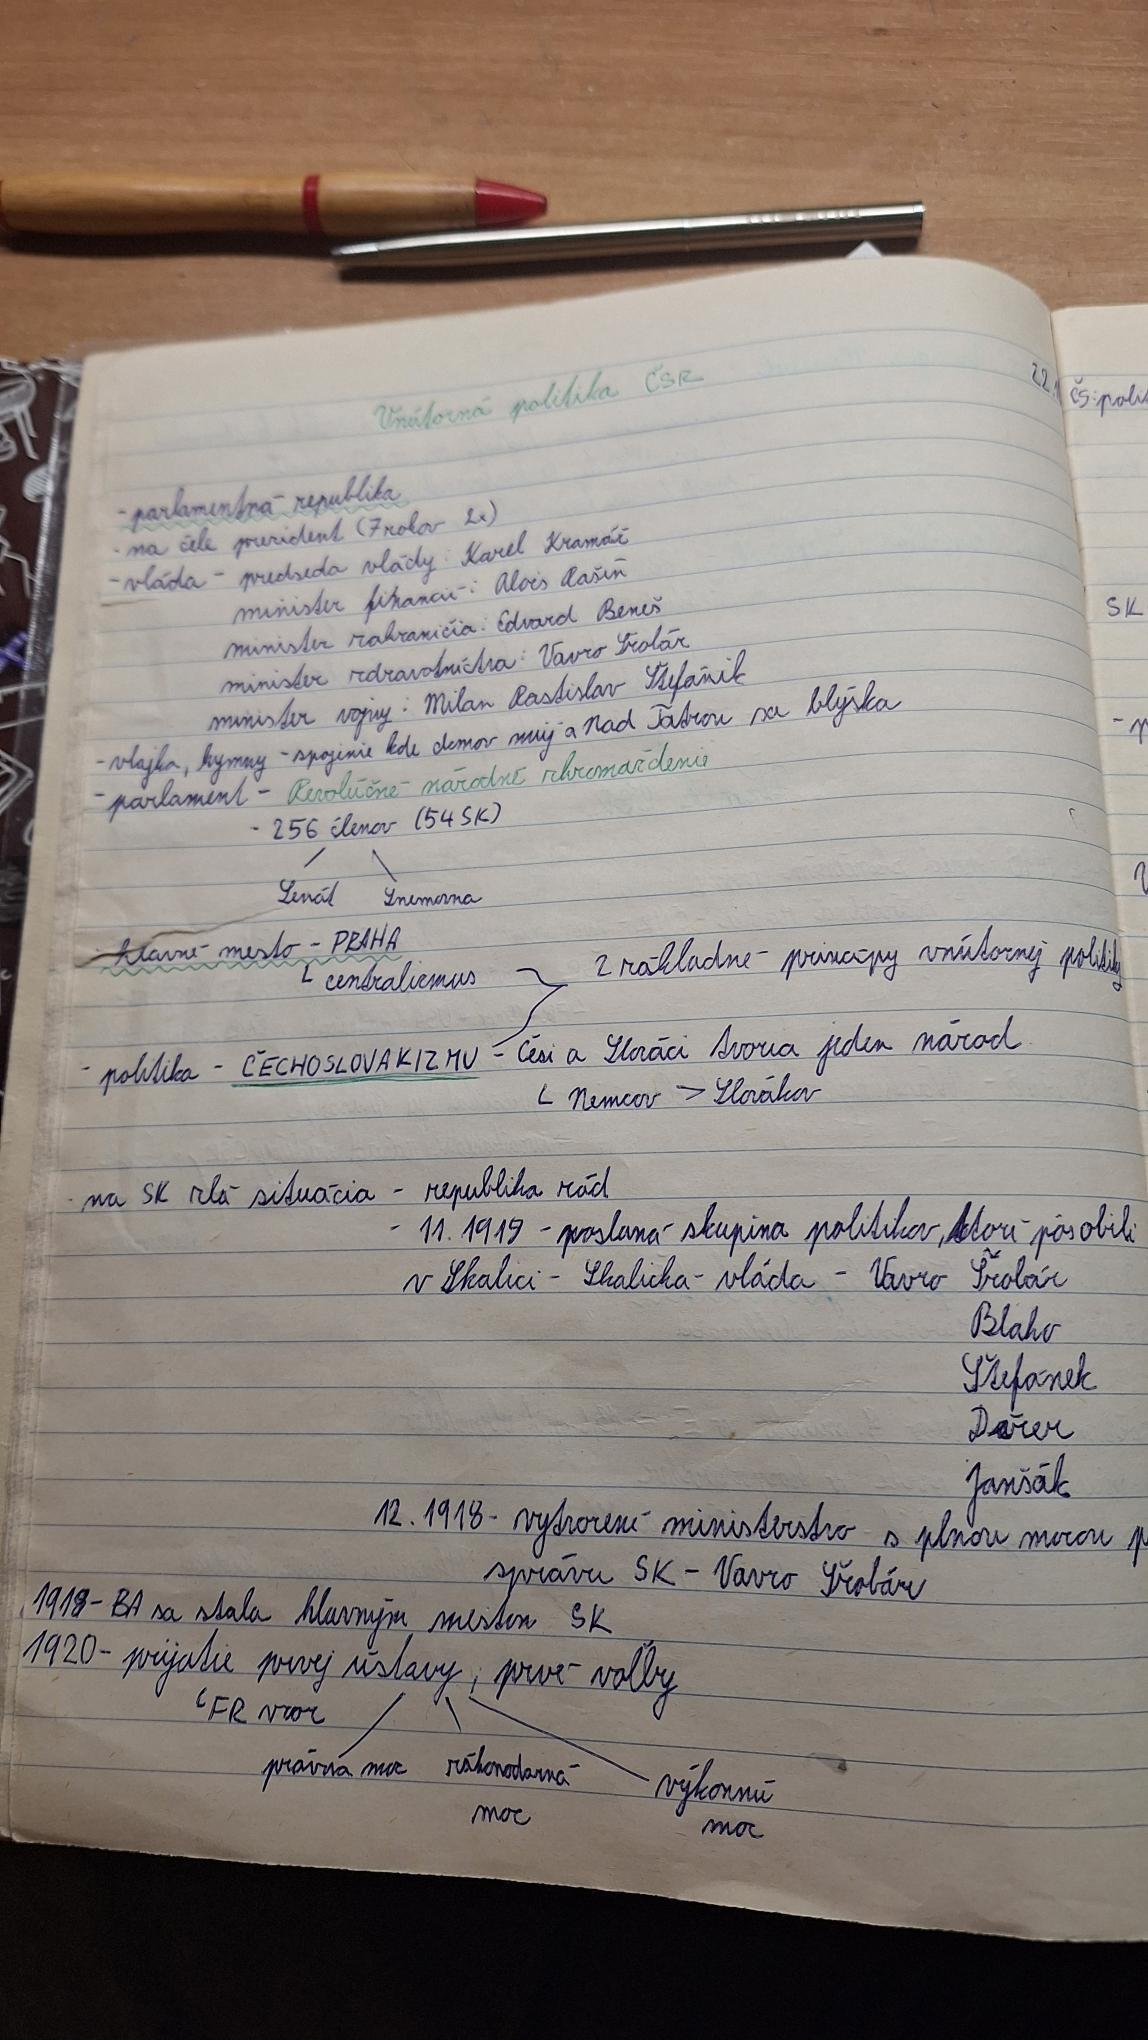 Vnútorná politika ČSR
22.
- parlamentná republika
- na čele prezident (7 rokov 2x)
- vláda - predseda vlády: Karel Kramář
minister financií: Alois Rašín
minister zahraničia: Edvard Beneš
minister zdravotníctva: Vavro Šrobár
minister vojny: Milan Rastislav Štefánik
- vlajka, hymny - spojenie kde domov muj a Nad Tatrou sa blýska
- parlament - Revolučné národné zhromaždenie
- 256 členov (54 SK)
Senát Snemovna
- hlavné mesto - PRAHA
centralizmus
2 základné princípy vnútornej politiky
- politika - ČECHOSLOVAKIZMU - Česi a Slováci tvoria jeden národ
Nemcov > Slovákov
- na SK zlá situácia - republika rád
- 11. 1919 - poslaná skupina politikov, ktorí pôsobili
v Skalici - Skalická vláda - Vavro Šrobár
Blaho
Štefánek
Dérer
Janšák
12. 1918 - vytvorené ministerstvo s plnou mocou p
správu SK - Vavro Šrobár
1919 - BA sa stala hlavným mestom SK
1920 - prijatie prvej ústavy, prvé voľby
FR vzor
právna moc zákonodarná výkonnú
moc moc
ČS: polit
SK